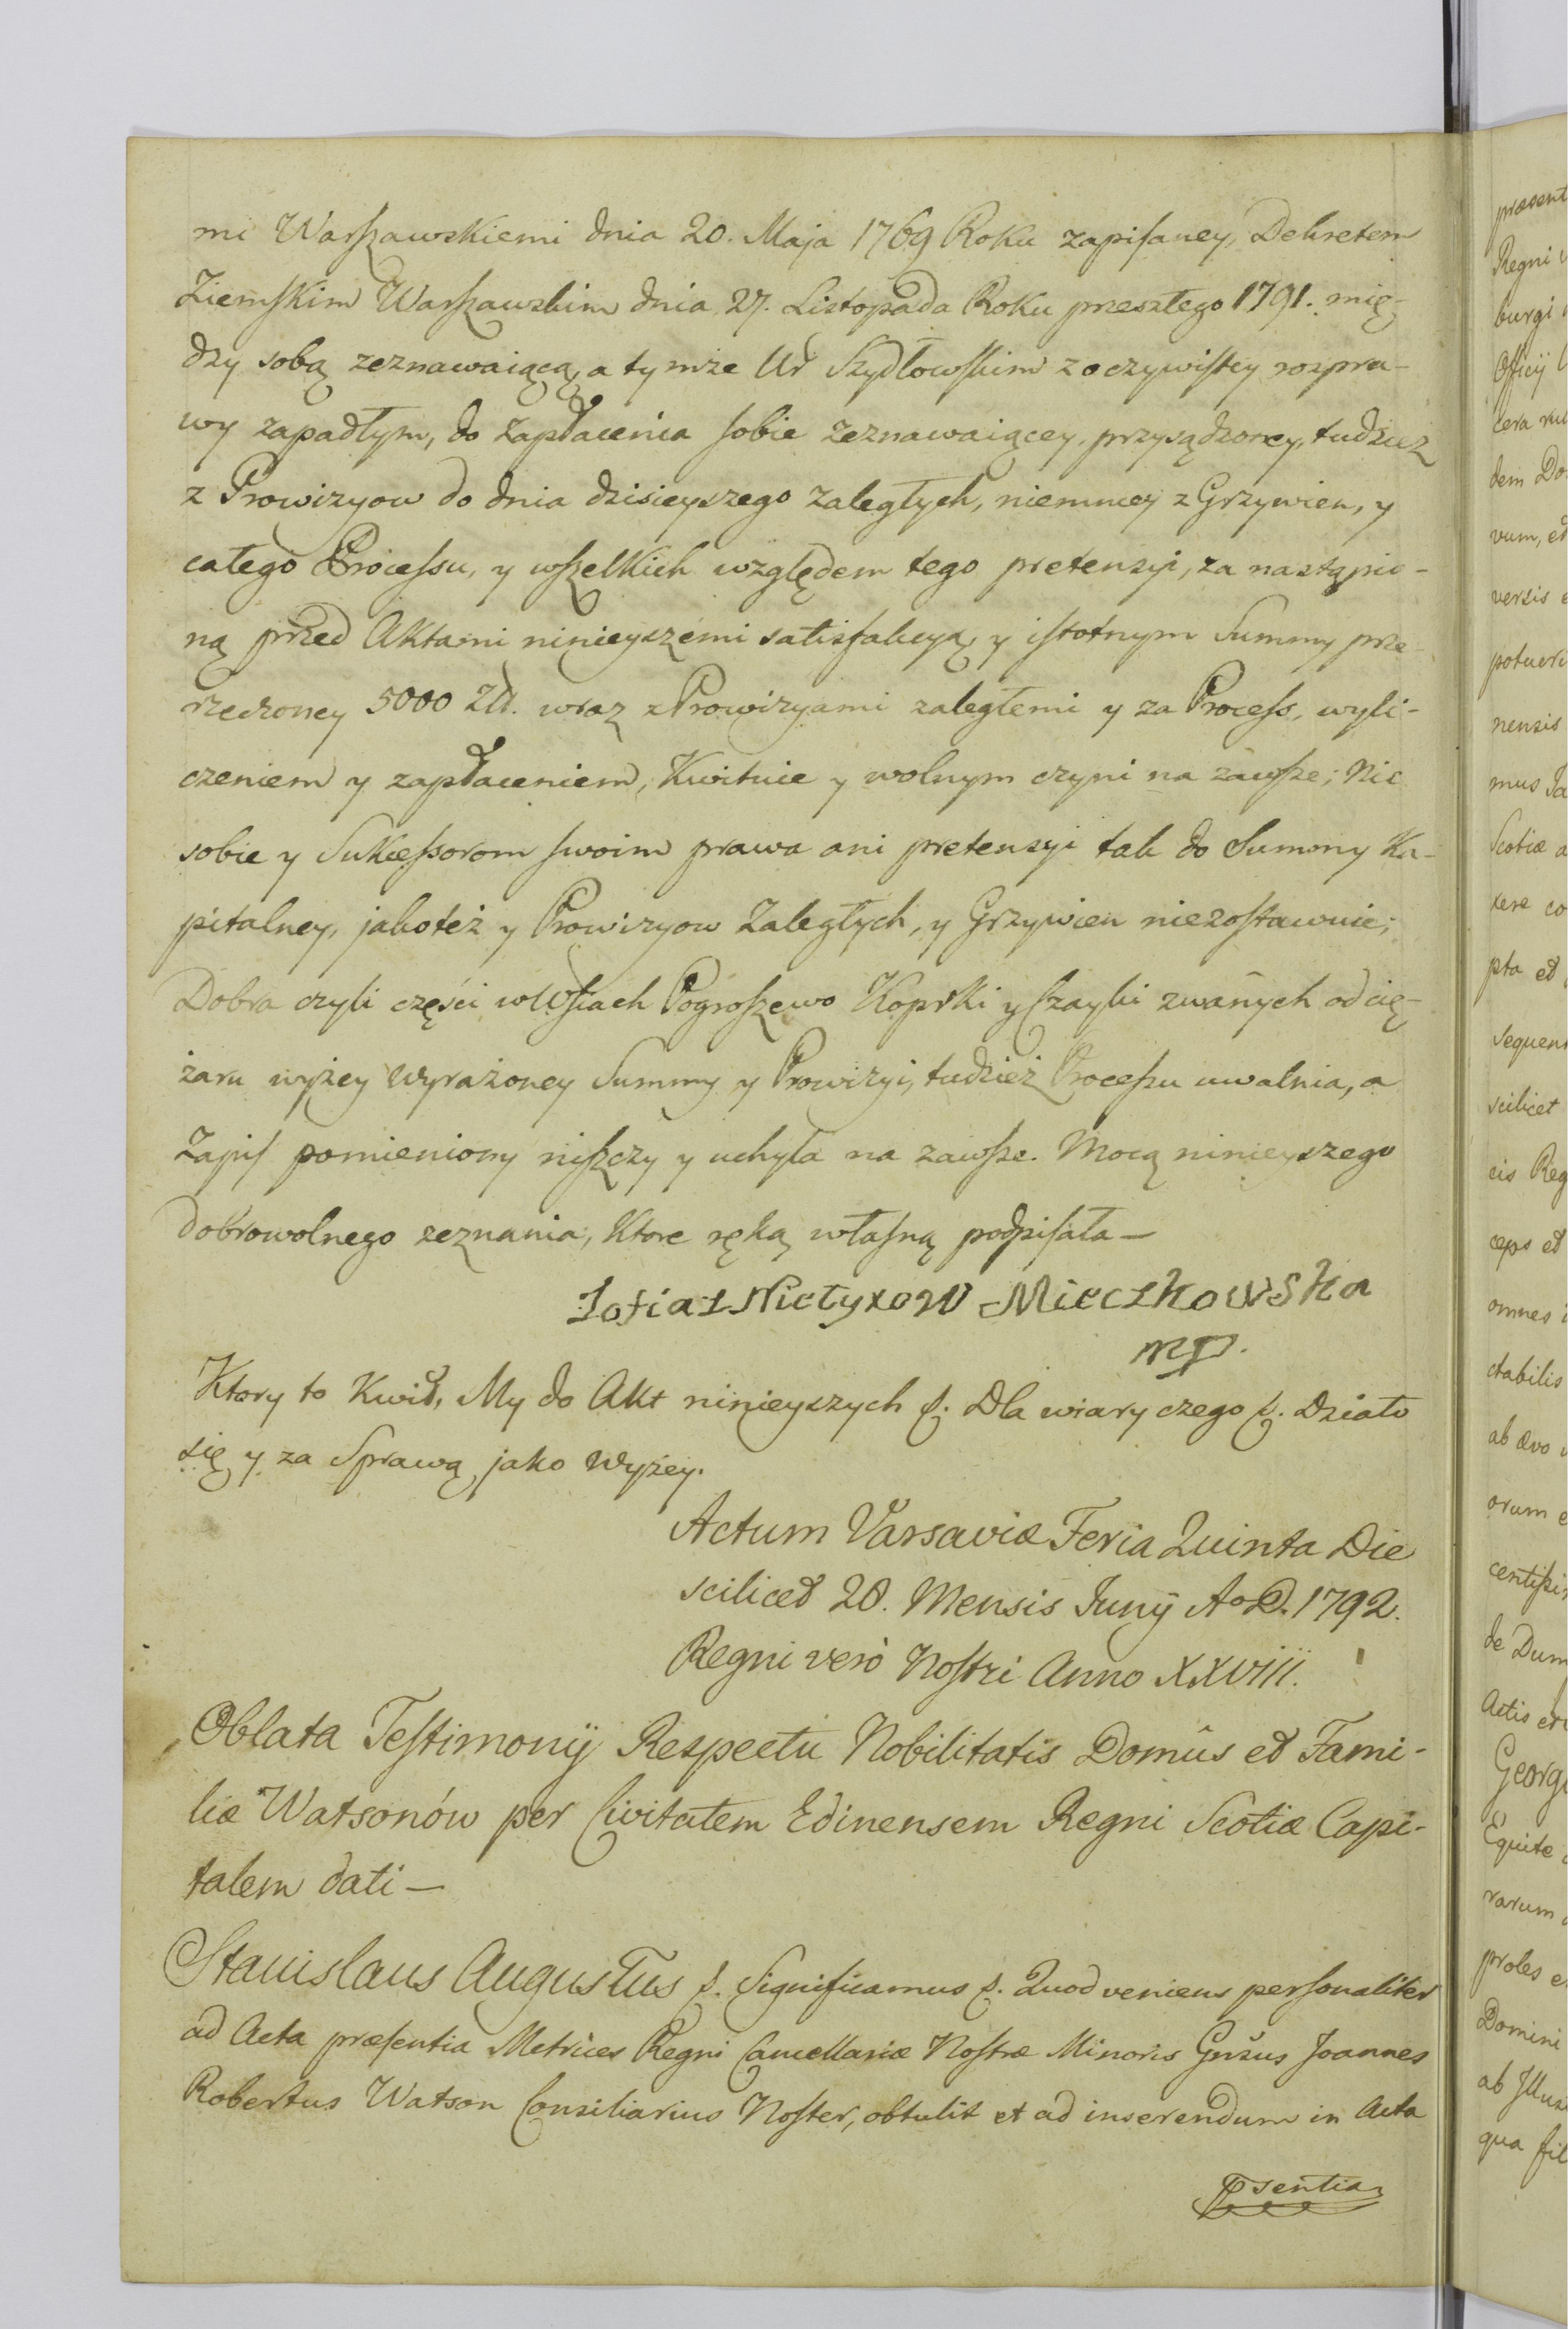 mi Warſzawskiemi dnia 20. Maja 1769 Roku zapiſaney, Dekretem
Ziemſkim Warſzawskim dnia 27. Listopada Roku przeszłego 1791. mię-
dzy sobą zeznawaiącą, a tymże Ur Szydłowſkim z oczywiſtey rozpra-
wy zapadłym, do zapłacenia ſobie zeznawaiącey, przysądzoney, tudzież
z Prowizyow do dnia dzisieyszego zaległych, niemniey z Grzywien, y
całego Proceſsu, y wſzelkich względem tego pretensyi, za nastąpio-
ną przed Aktami ninieyszemi satisfakcyą, y iſtotnym Summy prze-
rzeczoney 5000 Zł. wraz z Prowizyami zaległemi y za Proceſs, wyli-
czeniem y zapłaceniem, Kwituie y wolnym czyni na zawſze; Nic
sobie y Sukceſsorom ſwoim prawa ani pretensyi tak do Summy Ka-
pitalney, jakoteż y Prowizyow Zaległych, y Grzywien niezoſtawuie;
Dobra czyli części w Wſiach Pogroſzewo Koprki y Czayki zwanych od cię-
żaru wyżey wyrażoney Summy y Prowizyi, tudzież Proceſsu uwalnia, a
Zapiſ pomieniony niſzczy y uchyla na zawſze. Mocą ninieyszego
dobrowolnego zeznania, Ktore ręką właſną podpiſała —
Zofia z Nietyxow Mieczkowska
mp.
Ktory to Kwit, My do Akt ninieyszych ſ. Dla wiary czego ſ. Działo
się y za Sprawą jako wyżey.
Actum Varsaviæ Feria Quinta Die
scilicet 28. Mensis Junÿ Aº D. 1792.
Regni verò Noſtri Anno XXVIII.
Oblata Teſtimonÿ Respectu Nobilitatis Domûs et Fami-
liæ Watsonów per Civitatem Edinensem Regni Scotiæ Capi-
talem dati —
Stanislaus Augustus ſ. Significamus ſ. Quod veniens perſonaliter
ad Acta præſentia Metrices Regni Cancellariæ Noſtræ Minoris Gnſus Joannes
Robertus Watson Consiliarius Noſter, obtulit et ad inserendum in Acta
Psentia
præsent
Regni
burgi
Officÿ
cera
dem
vum, et
versis
potueri
nensis
mus
Scotiæ
xere
pta et
sequen
scilicet
cis Reg
ceps et
omnes
ctabilis
ab ævo
orum
centiſsi
de Dum
Actis
Georg
Equite
rarum
proles
Domini
ab Illus
qua fil